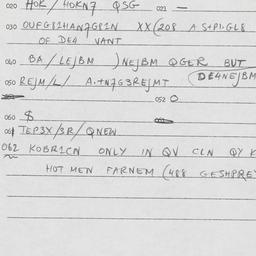 020 HOK / HOKN7 QSG 021 —
030 OUFG81HAN7G81N XX(208 A S+PI-GL8
OF DE4 VANT
040 BA / LEJBM ) NEJBM QGER BUT
050 REJM/L/ A.+N7G3REJMT (DE4NEJBM
052 O
060 $
061 TEP3X/3R/QNEW
062 KOBR1CN ONLY IN QV CLN QY K
HOT MEN FARNEM (488 GESHPREY